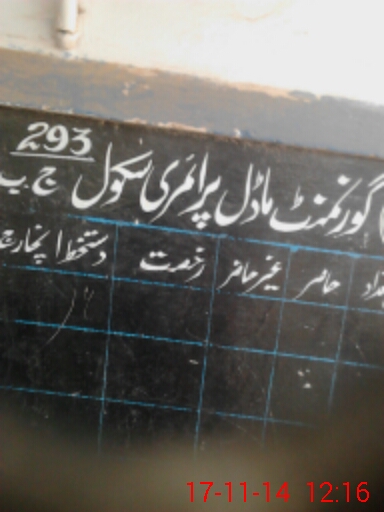 گورنمنٹ ماڈل پرائمری سکول 293 ج ب
حاضر غیر حاضر رخصت دستخط انچارج
17-11-14 12:16